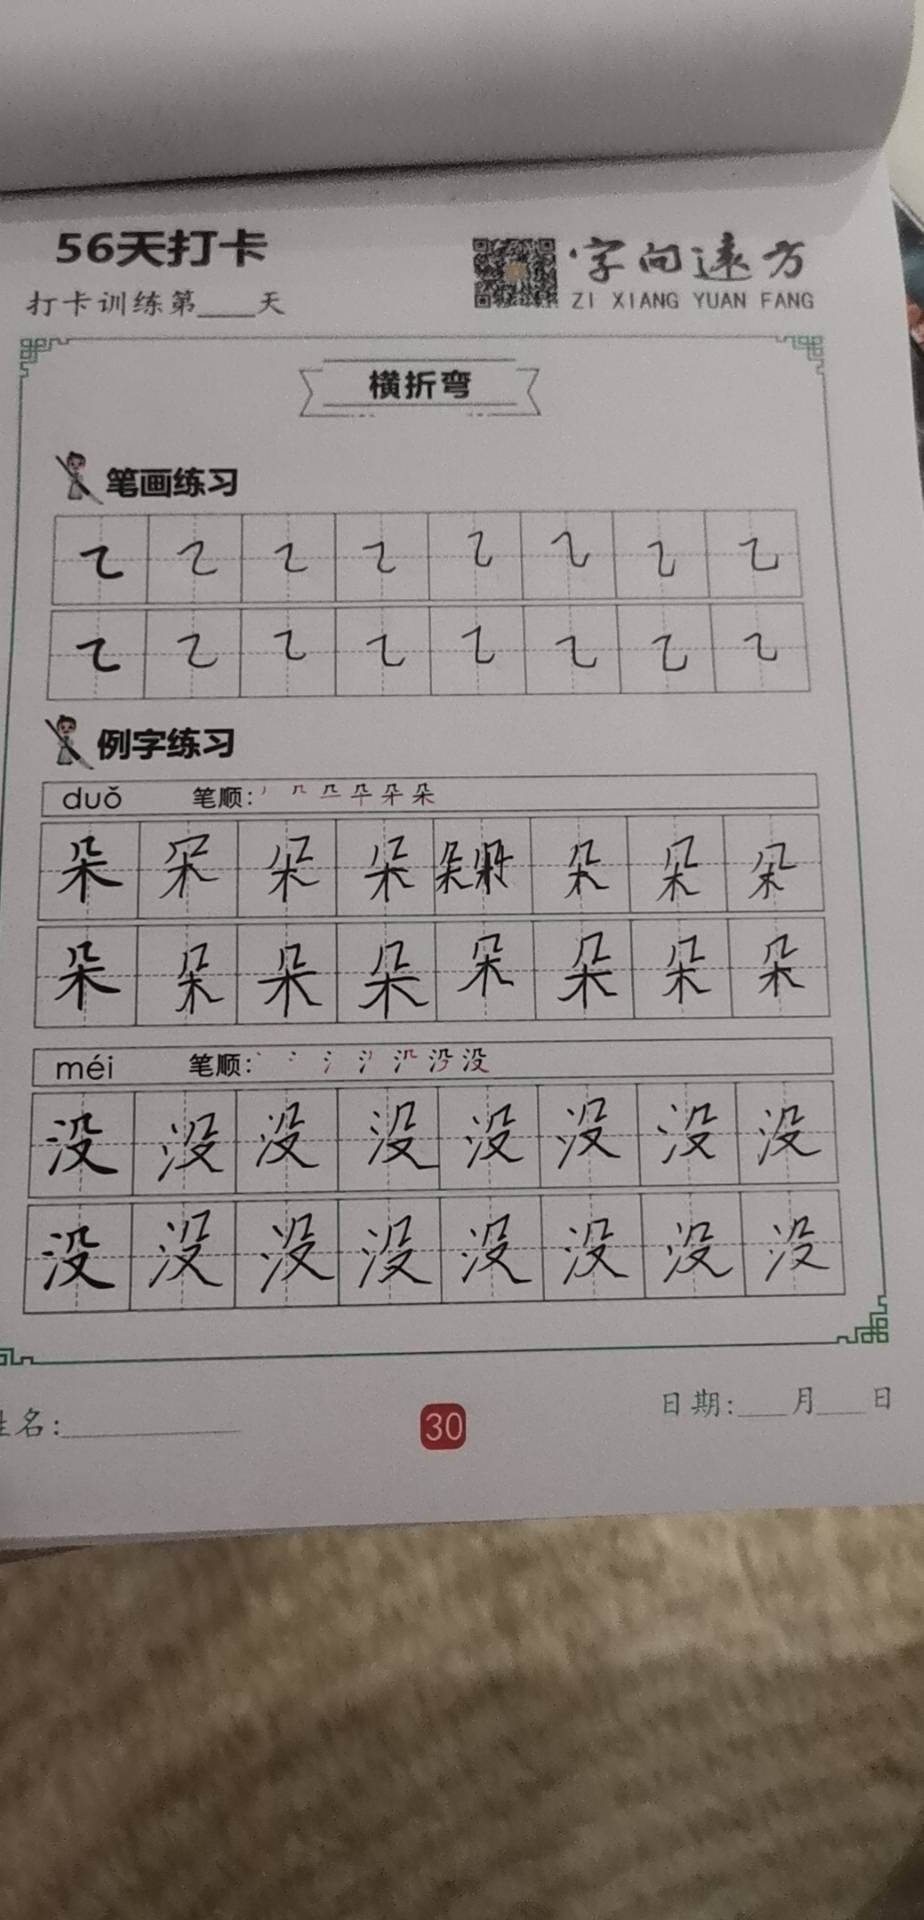 56天打卡
字向远方
打卡训练第____天
ZI XIANG YUAN FANG
横折弯
笔画练习
例字练习
duǒ 笔顺:
朵 朵 朵 朵 朵 朵 朵 朵
朵 朵 朵 朵 朵 朵 朵 朵
méi 笔顺:
没 没 没 没 没 没 没 没
没 没 没 没 没 没 没 没
姓名:____________
30
日期:___月___日